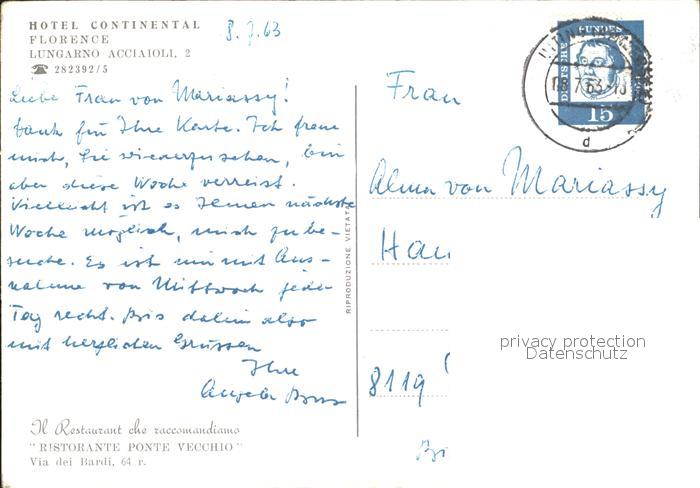 HOTEL CONTINENTAL
FLORENCE
LUNGARNO ACCIAIOLI, 2
☎ 282392/5
8.7.63
Liebe Frau von Mariassy!
Dank für Ihre Karte. Ich freue
mich, Sie wiederzusehen, bin
aber diese Woche verreist.
Vielleicht ist es Ihnen nächste
Woche möglich, mich zu be-
suchen. Es ist mir mit Aus-
nahme von Mittwoch jeder
Tag recht. Bis dahin also
mit herzlichen Grüssen
Ihre
Angela
Il Restaurant che raccomandiamo
"RISTORANTE PONTE VECCHIO"
Via dei Bardi, 64 r.
RIPRODUZIONE VIETATA
DEUTSCHE BUNDES
15
d
Frau
Alma von Mariassy
Hau
8119
privacy protection
Datenschutz